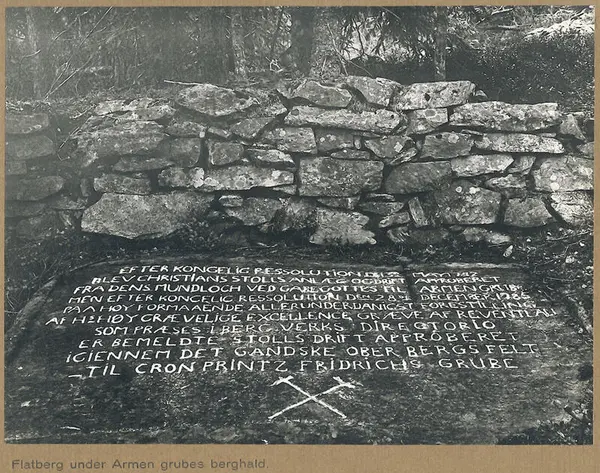 EFTER KONGELIG RESSOLUTION DEN 2DE MAYO 1782
BLEV CHRISTIANS STOLLS ANLÆG OG DRIFT APPROBERET
FRA DENS MUNDLOCH VED GABE GOTTES TIL ARMEN GRUBE
MEN EFTER KONGELIG RESSOLUTION DEN 28DE DECEMBER 1786
PAA HØY FORMAAENDE ALLERUNDERDANIGST FORESTILLING
AF HR HØYGRÆVELIGE EXCELLENCE GRÆVE AF REVENTLAU
SOM PRÆSES I BERG VERKS DIRECTORIO
ER BEMELDTE STOLLS DRIFT APPROBERET
IGIENNEM DET GANDSKE OBER BERGS FELT
TIL CRON PRINTZ FRIDRICHS GRUBE
Flatberg under Armen grubes berghald.